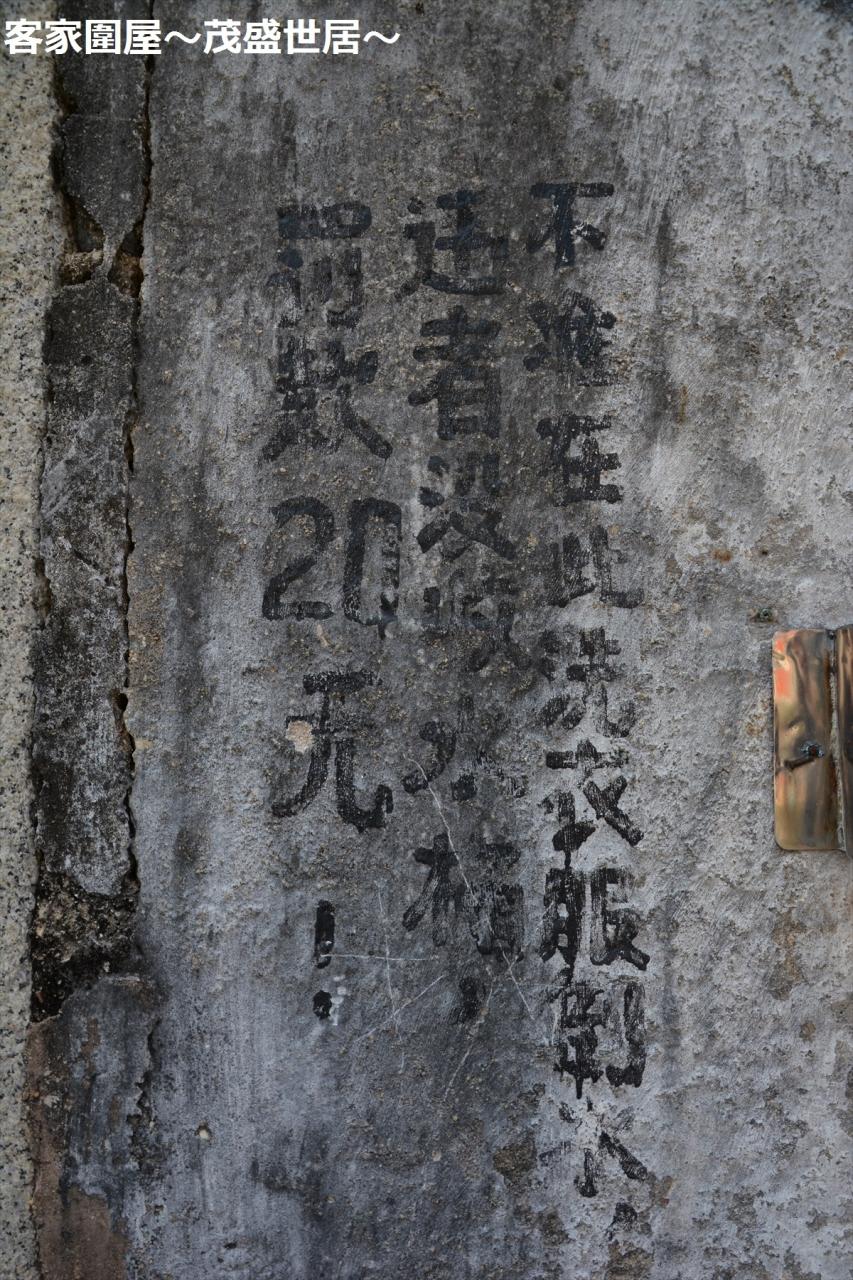 客家圍屋～茂盛世居～
不准在此洗衣服倒水,
违者没收水桶,
罚款20元!